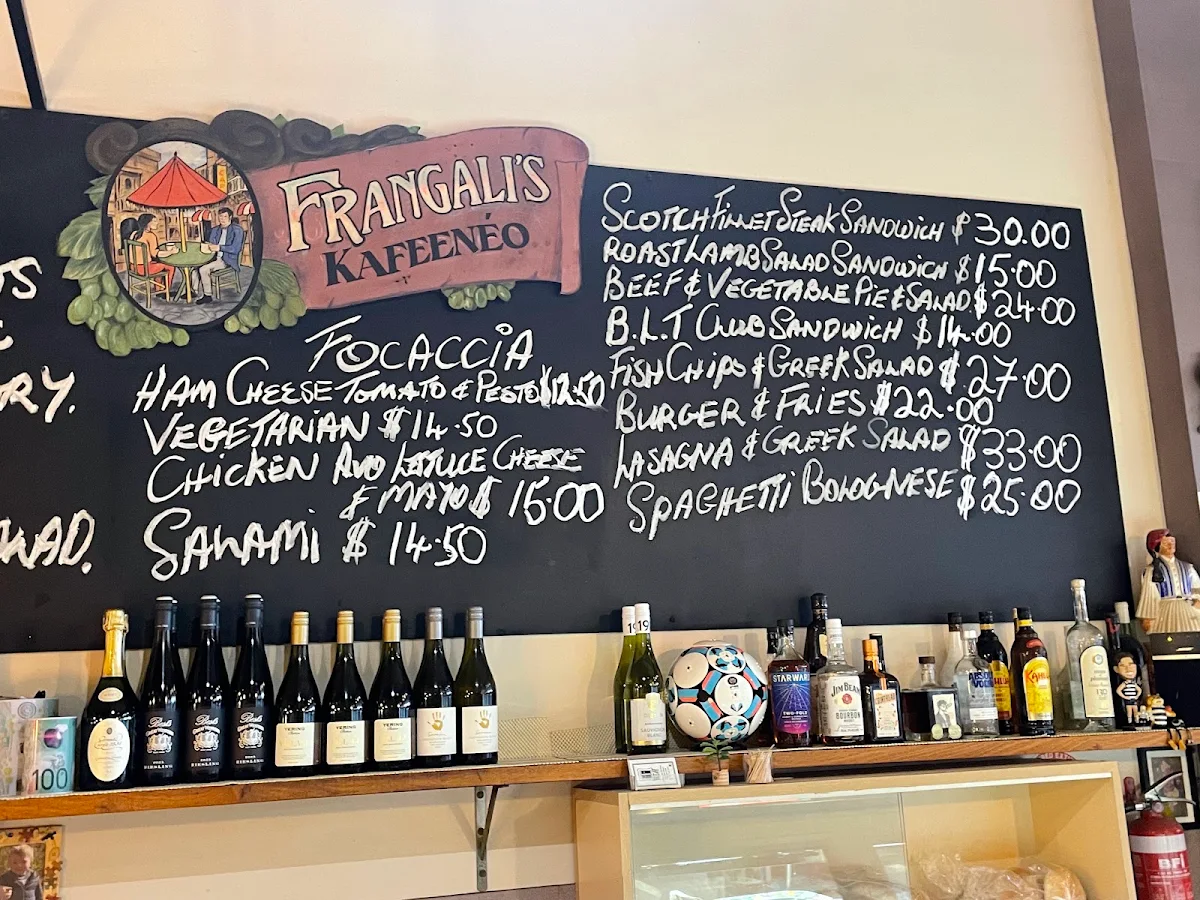 FRANGALI'S
KAFEENÉO
RY.
FOCACCIA
HAM CHEESE TOMATO & PESTO $12.50
VEGETARIAN $14.50
CHICKEN AVO LETTUCE CHEESE
& MAYO $15.00
SALAMI $14.50
SCOTCH FILLET STEAK SANDWICH $30.00
ROAST LAMB SALAD SANDWICH $15.00
BEEF & VEGETABLE PIE & SALAD $24.00
B.L.T CLUB SANDWICH $14.00
FISH CHIPS & GREEK SALAD $27.00
BURGER & FRIES $22.00
LASAGNA & GREEK SALAD $33.00
SPAGHETTI BOLOGNESE $25.00
100
RIESLING
RIESLING
RIESLING
19
19
STARWARD
TWO-FOLD
JIM BEAM
BOURBON
ABSOLUT
VODKA
KAHLUA
BFI